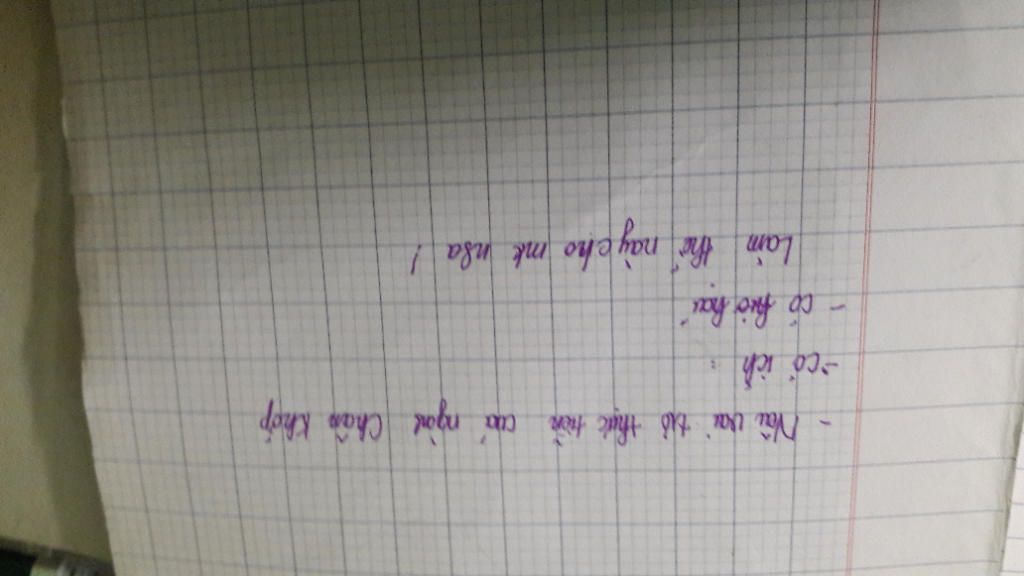 - Nêu vai trò thực tiễn của ngành Chân Khớp
- có ích :
- có hại
Làm thế này cho mk nữa !